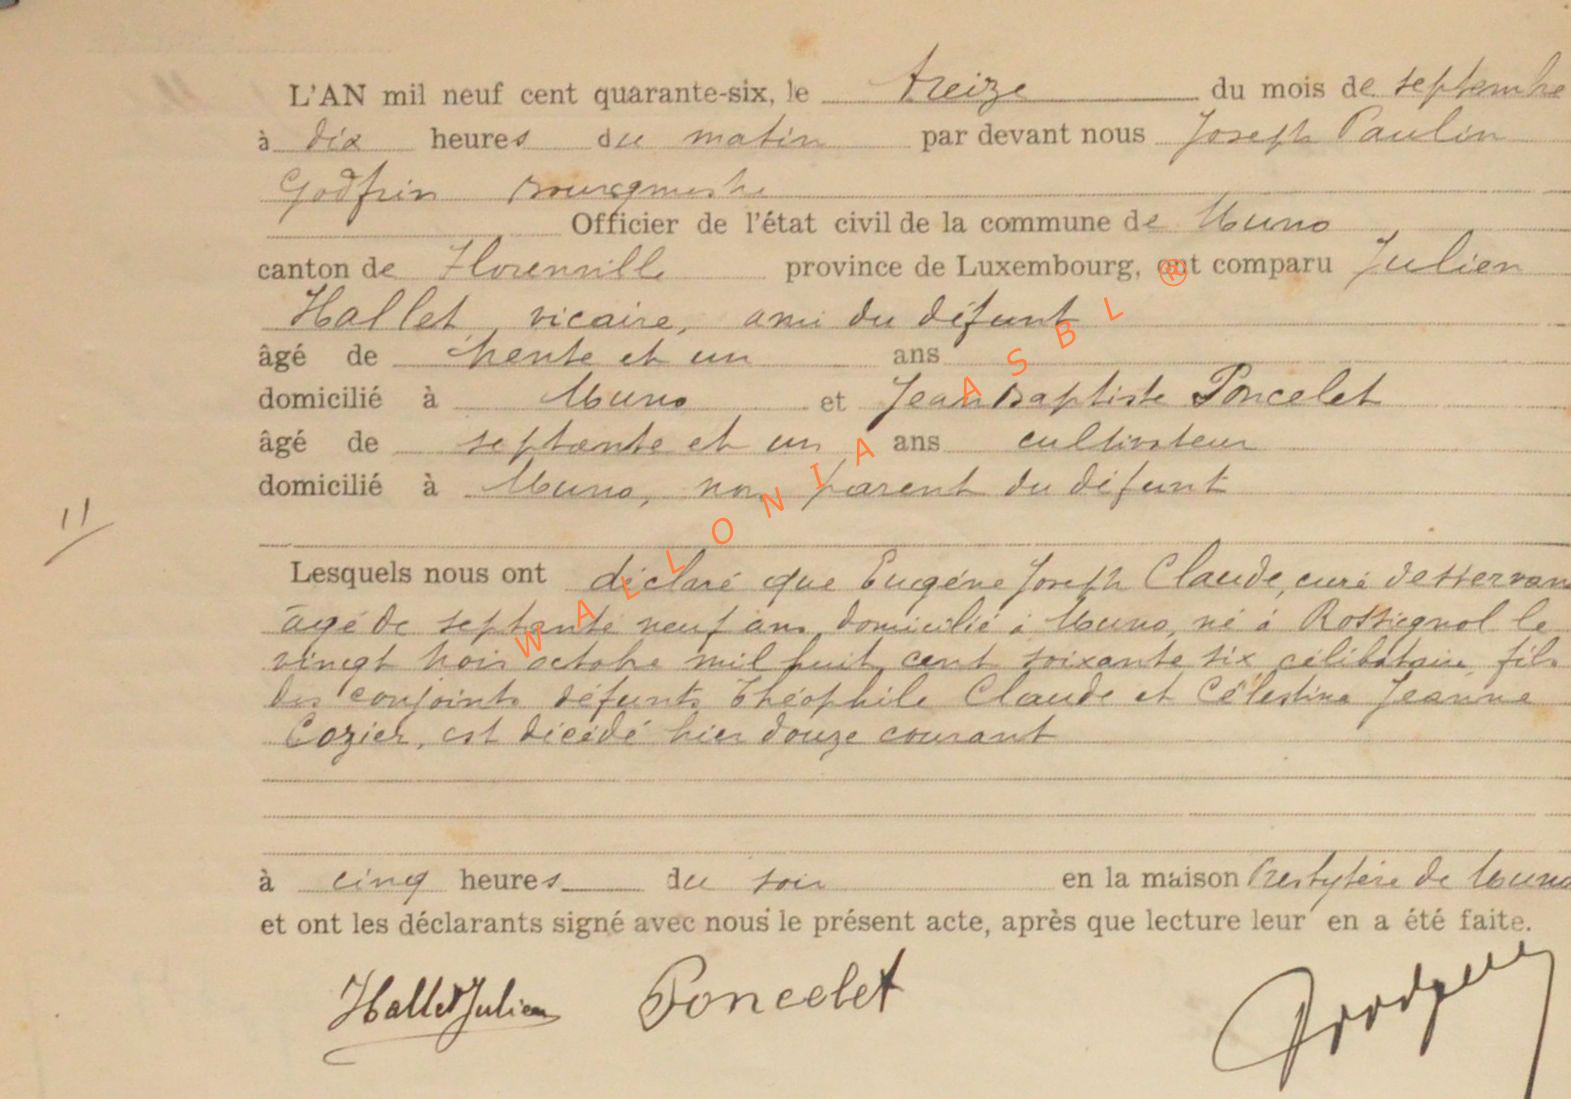 L'AN mil neuf cent quarante-six, le treize du mois de septembre
à dix heures du matin par devant nous Joseph Paulin
Godfrin Bourgmestre
Officier de l'état civil de la commune de Muno
canton de Florenville province de Luxembourg, ont comparu Julien
Hallet, vicaire, ami du défunt
âgé de trente et un ans
domicilié à Muno et Jean Baptiste Poncelet
âgé de septante et un ans cultivateur
domicilié à Muno, non parent du défunt
11
Lesquels nous ont déclaré que Eugéne Joseph Claude, curé desservan
âgé de septante neuf ans, domicilié à Muno, né à Rossignol le
vingt trois octobre mil huit cent soixante six célibataire, fils
des conjoints défunts Théophile Claude et Célestine Jeanne
Cozier, est décédé hier douze courant
à cinq heures du soir en la maison Presbytère de Muno
et ont les déclarants signé avec nous le présent acte, après que lecture leur en a été faite.
Hallet Julien Poncelet
WALLONIA ASBL ®